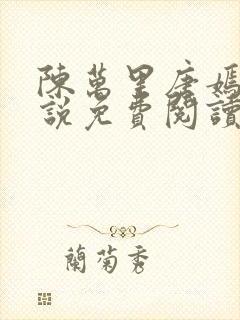 陳萬里唐嫣
說免費閱讀
蘭菊秀